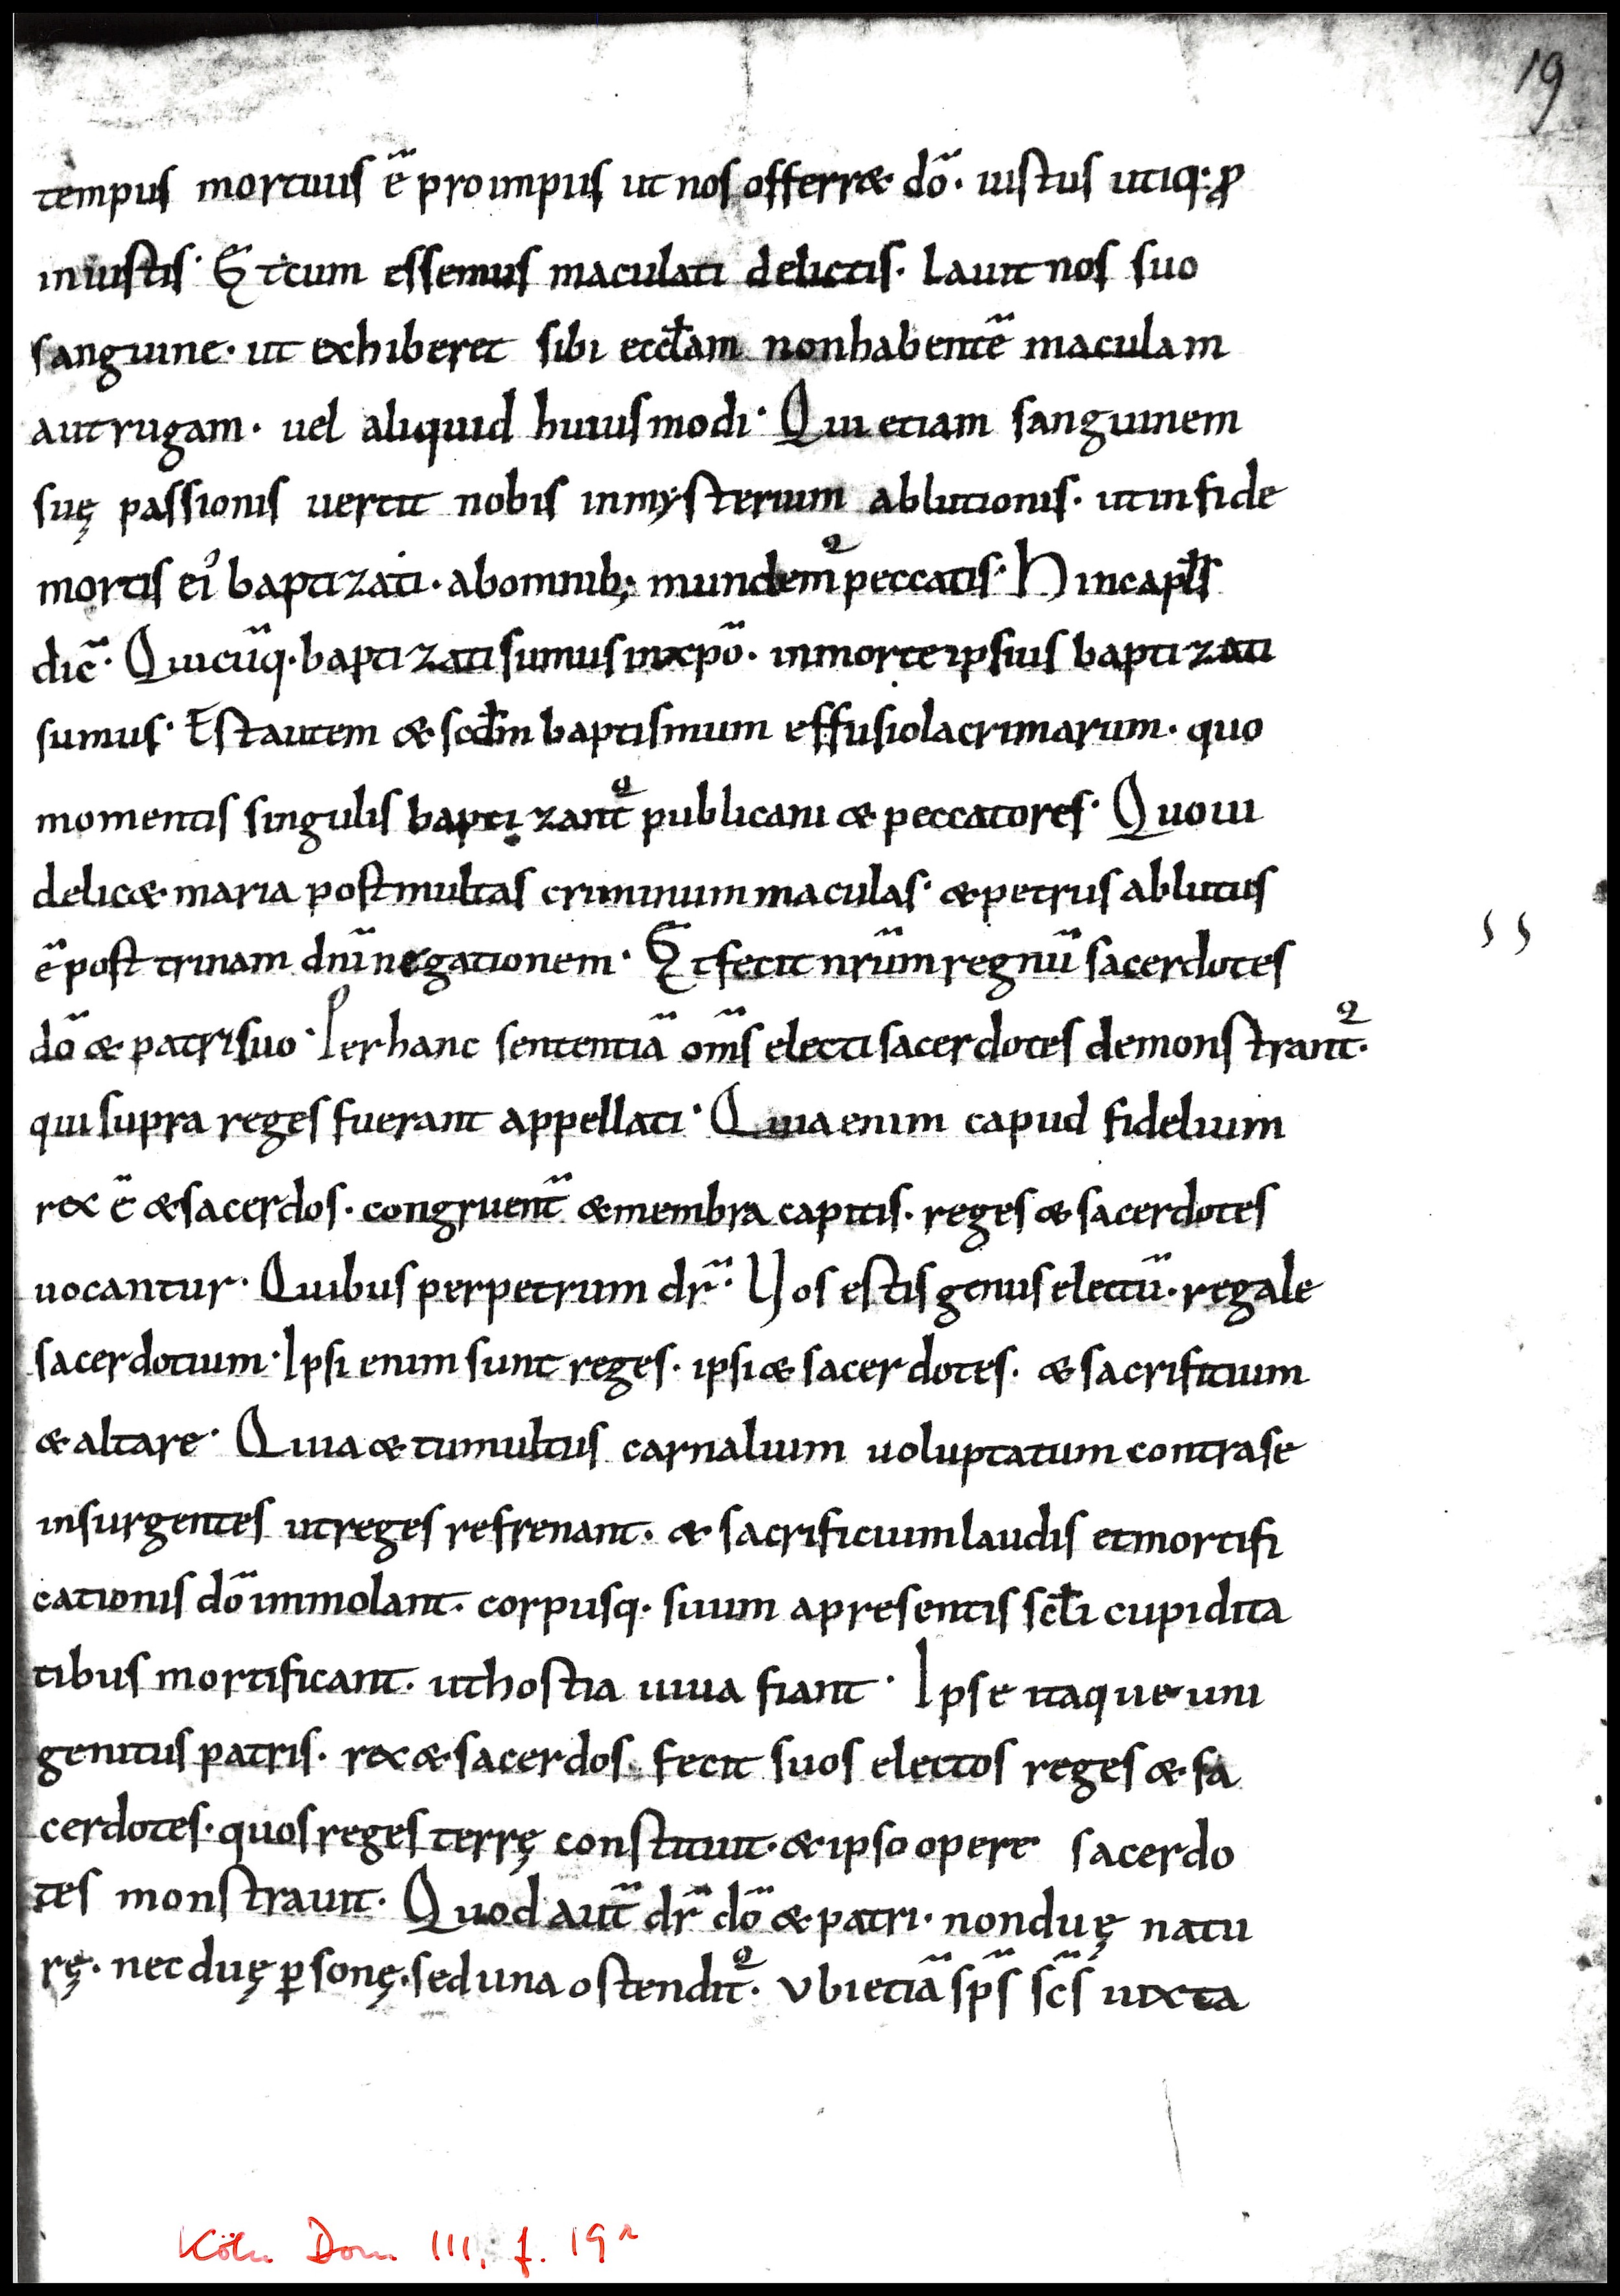 19
tempus mortuus ē pro impiis ut nos offerr& dō. iustus utiq; ꝓ
iniustis. Et cum essemus maculati delictis. Lauit nos suo
sanguine. ut exhiberet sibi ecctam non habentē maculam
aut rugam. uel aliquid huiusmodi. Qui etiam sanguinem
suę passionis uertit nobis in mysterium ablutionis. ut in fide
mortis ei᾽ baptizati. ab omnib; mundem̃ peccatis. Hinc apls
dic̃. Quicūq. baptizati sumus in xpō. in morte ipsius baptizati
sumus. Est autem & scdm baptismum effusio lacrimarum. quo
momentis singulis baptizant̃ publicani & peccatores. Quo ui
delic& maria post multas criminum maculas. & petrus ablutus
ē post trinam dñi negationem. Et fecit nr̄m regnū sacerdotes
dō & patri suo. Per hanc sententiā om̄s electi sacerdotes demonstrant̃.
qui supra reges fuerant appellati. Quia enim capud fidelium
rex ē & sacerdos. congruent̃ & membra capitis. reges & sacerdotes
uocantur. Quibus per petrum dr̄. Vos estis genus electū. regale
sacerdotium. Ipsi enim sunt reges. ipsi & sacerdotes. & sacrifitium
& altare. Quia & tumultus carnalium uoluptatum contra se
insurgentes ut reges refrenant. & sacrificium laudis et mortifi
cationis dō immolant. corpusq. suum a presentis scti cupidita
tibus mortificant. ut hostia uiua fiant. Ipse itaque uni
genitus patris. rex & sacerdos. fecit suos electos reges & sa
cerdotes. quos reges terrę constituit. & ipso opere sacerdo
tes monstrauit. Quod aut̃ dr̄ dō & patri. non duę natu
rę. nec duę ꝑsonę. sed una ostendit̃. Vbi etiā sp̄s sc̄s iuxta
Köln Dom III, f. 19r